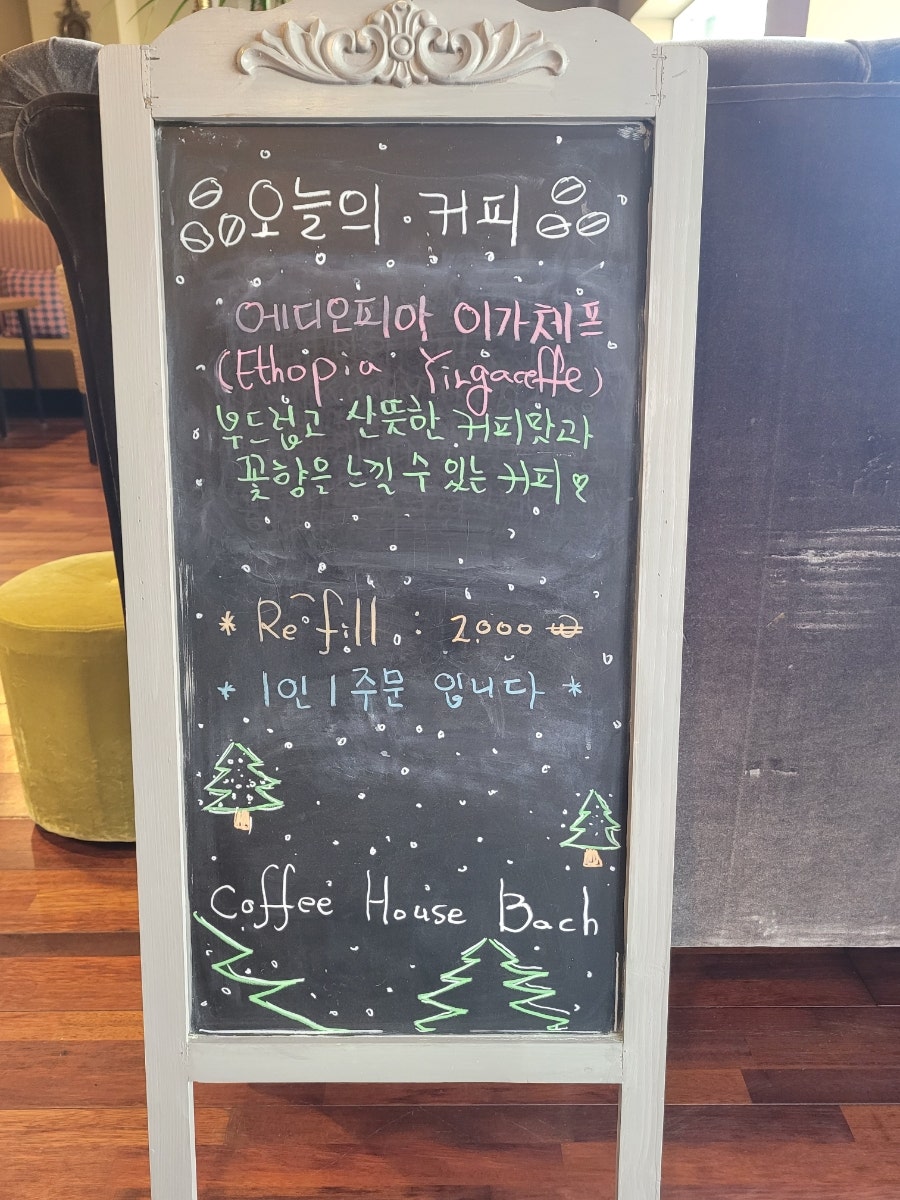 오늘의 커피
에디오피아 이가체프
(Ethopia Yirgaceffe)
부드럽고 산뜻한 커피맛과
꽃향을 느낄 수 있는 커피♡
* Refill : 2000 ₩
* 1인 1주문 입니다 *
Coffee House Bach